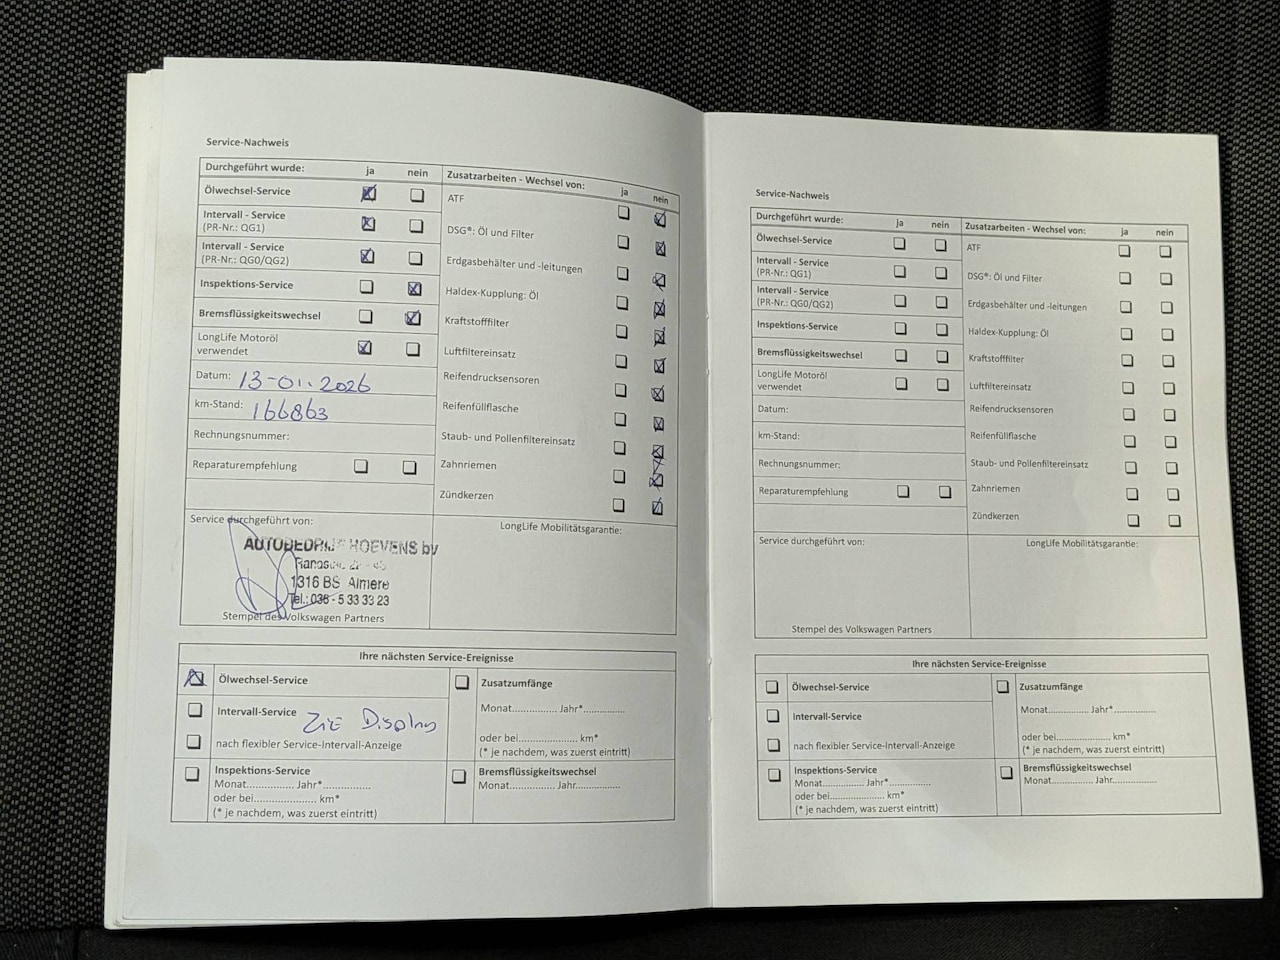 Service-Nachweis
Durchgeführt wurde: ja nein
Ölwechsel-Service
Intervall - Service
(PR-Nr.: QG1)
Intervall - Service
(PR-Nr.: QG0/QG2)
Inspektions-Service
Bremsflüssigkeitswechsel
LongLife Motoröl
verwendet
Datum: 13-01-2026
km-Stand: 166863
Rechnungsnummer:
Reparaturempfehlung
Zusatzarbeiten - Wechsel von: ja nein
ATF
DSG®: Öl und Filter
Erdgasbehälter und -leitungen
Haldex-Kupplung: Öl
Kraftstofffilter
Luftfiltereinsatz
Reifendrucksensoren
Reifenfüllflasche
Staub- und Pollenfiltereinsatz
Zahnriemen
Zündkerzen
Service durchgeführt von:
AUTOBEDRIJF HOEVENS bv
1316 BS Almere
Tel.: 036 - 5 33 33 23
Stempel des Volkswagen Partners
LongLife Mobilitätsgarantie:
Ihre nächsten Service-Ereignisse
Ölwechsel-Service
Intervall-Service Zie Display
nach flexibler Service-Intervall-Anzeige
Inspektions-Service
Monat.............. Jahr*...............
oder bei..................... km*
(* je nachdem, was zuerst eintritt)
Zusatzumfänge
Monat............... Jahr*..............
oder bei.................... km*
(* je nachdem, was zuerst eintritt)
Bremsflüssigkeitswechsel
Monat.............. Jahr...............
Service-Nachweis
Durchgeführt wurde: ja nein
Ölwechsel-Service
Intervall - Service
(PR-Nr.: QG1)
Intervall - Service
(PR-Nr.: QG0/QG2)
Inspektions-Service
Bremsflüssigkeitswechsel
LongLife Motoröl
verwendet
Datum:
km-Stand:
Rechnungsnummer:
Reparaturempfehlung
Zusatzarbeiten - Wechsel von: ja nein
ATF
DSG®: Öl und Filter
Erdgasbehälter und -leitungen
Haldex-Kupplung: Öl
Kraftstofffilter
Luftfiltereinsatz
Reifendrucksensoren
Reifenfüllflasche
Staub- und Pollenfiltereinsatz
Zahnriemen
Zündkerzen
Service durchgeführt von:
Stempel des Volkswagen Partners
LongLife Mobilitätsgarantie:
Ihre nächsten Service-Ereignisse
Ölwechsel-Service
Intervall-Service
nach flexibler Service-Intervall-Anzeige
Inspektions-Service
Monat.............. Jahr*..............
oder bei..................... km*
(* je nachdem, was zuerst eintritt)
Zusatzumfänge
Monat............... Jahr*..............
oder bei.................... km*
(* je nachdem, was zuerst eintritt)
Bremsflüssigkeitswechsel
Monat.............. Jahr...............